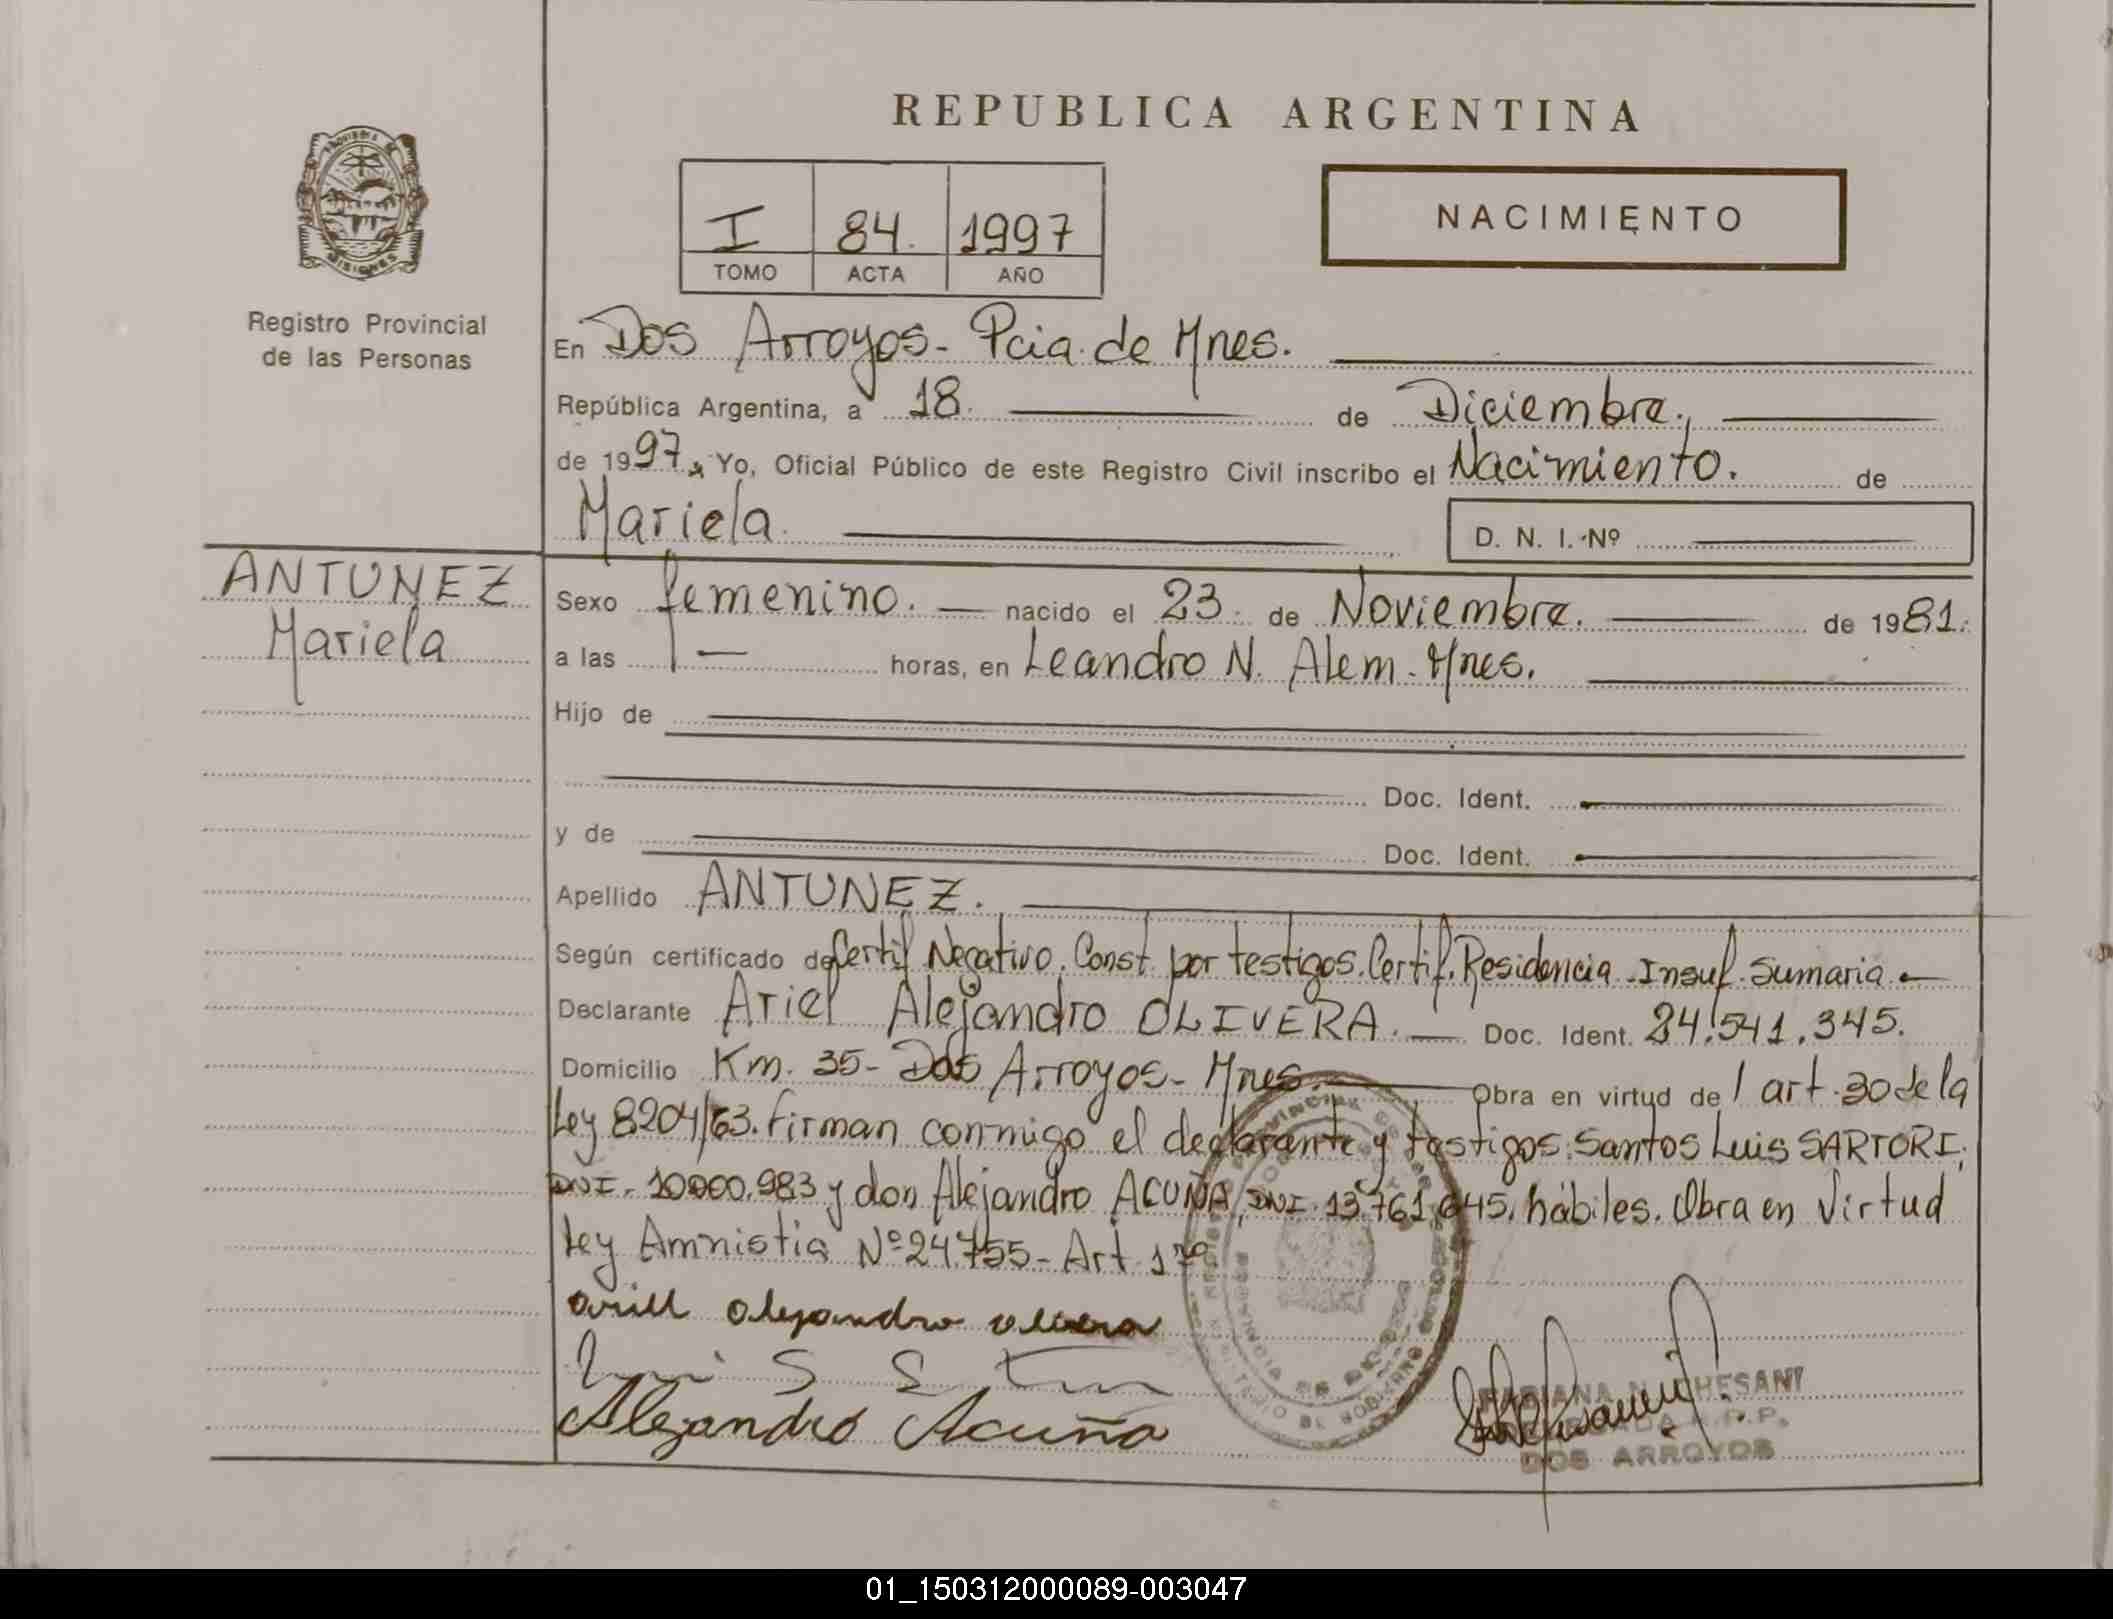 REPUBLICA ARGENTINA
I 84. 1997
TOMO ACTA AÑO
NACIMIENTO
Registro Provincial
de las Personas
En Dos Arroyos - Pcia. de Mnes.
República Argentina, a 18. de Diciembre.,
de 1997, Yo, Oficial Público de este Registro Civil inscribo el Nacimiento. de
Mariela. D. N. I. Nº
ANTUNEZ
Mariela
Sexo femenino. nacido el 23. de Noviembre. de 1981.
a las horas, en Leandro N. Alem - Mnes.
Hijo de
Doc. Ident.
y de Doc. Ident.
Apellido ANTUNEZ.
Según certificado de Certif Negativo. Const. por testigos. Certif. Residencia - Insuf. Sumaria.
Declarante Ariel Alejandro OLIVERA. Doc. Ident. 24.541.345.
Domicilio Km. 35 - Dos Arroyos - Mnes. Obra en virtud de l art. 30 de la
Ley 8204/63. Firman conmigo el declarante y testigos: Santos Luis SARTORI,
DNI. 10.000.983 y don Alejandro ACUÑA, DNI. 13.761.645, hábiles. Obra en Virtud
Ley Amnistia Nº 24.755 - Art. 1º
Alejandro
Alejandro Acuña
HESANI
DOS ARROYOS
01_150312000089-003047